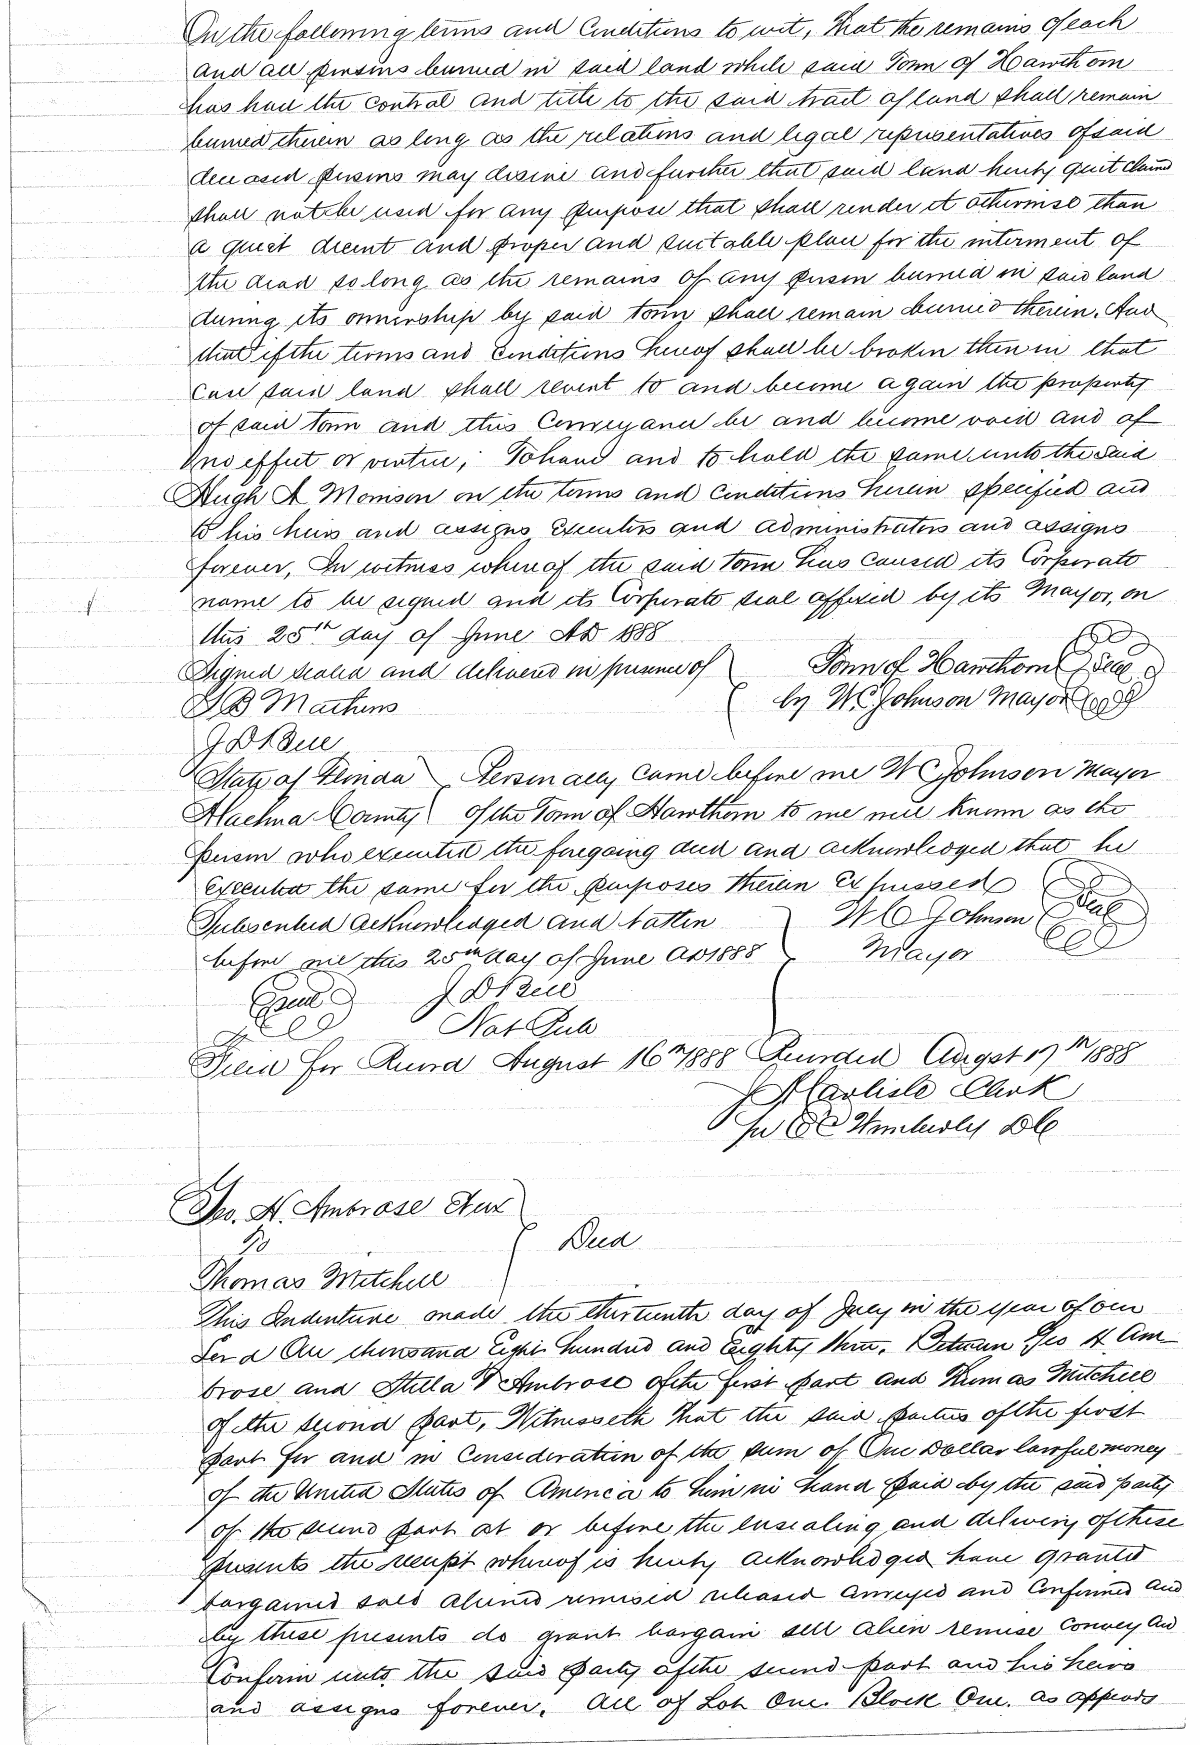 On the following terms and Conditions to wit, That the remains of each
and all persons burried in said land while said Town of Hawthorn
has had the control and title to the said tract of land shall remain
burried therein as long as the relations and legal representatives of said
deceased persons may desire and further that said land hereby quit claimed
shall not be used for any purpose that shall render it otherwise than
a quiet decent and proper and suitable place for the interment of
the dead so long as the remains of any person burried in said land
during its ownership by said town shall remain burried therein. And
that if the terms and Conditions hereof shall be broken then in that
Case said land shall revert to and become again the property
of said town and this Conveyance be and become void and of
no effect or virtue; To have and to hold the same unto the said
Hugh A Morrison on the terms and Conditions herein specified and
to his heirs and assigns Executors and administrators and assigns
forever, In witness whereof the said town has caused its Corporate
name to be signed and its Corporate seal affixed by its Mayor, on
this 25th day of June AD 1888
Signed sealed and delivered in presence of Town of Hawthorn Seal
Mathews by W.C. Johnson Mayor
State of Florida Personally came before me W C Johnson Mayor
Alachua County of the Town of Hawthorn to me well known as the
person who executed the foregoing deed and acknowledged that he
executed the same for the purposes therein Expressed
Subscribed acknowledged and before W C Johnson Seal
before me this 25th day of June AD 1888 Mayor
Seal
Not Pub
Filed for Record August 16th 1888 Recorded August 17th 1888
Carlisle Clerk
per Wimberly DC
Geo. H. Ambrose & ux
To Deed
Thomas Mitchell
This Indenture made the thirteenth day of July in the year of our
Lord One thousand Eight hundred and Eighty three, Between Geo H Am-
brose and Stella Ambrose of the first part and Thomas Mitchell
of the second part, Witnesseth that the said parties of the first
part for and in Consideration of the sum of One Dollar lawful money
of the United States of America to him in hand paid by the said party
of the second part at or before the ensealing and delivery of these
presents the receipt whereof is hereby acknowledged have granted
bargained sold aliened remised released conveyed and Confirmed and
by these presents do grant bargain sell alien remise convey and
Confirm unto the said party of the second part and his heirs
and assigns forever, All of Lot One. Block One. as appears